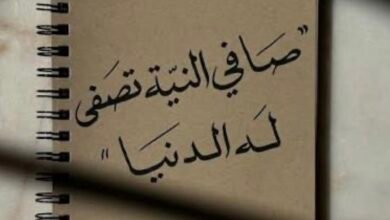 "صَافي النيّة تصَفى
لَه الدنيَا"